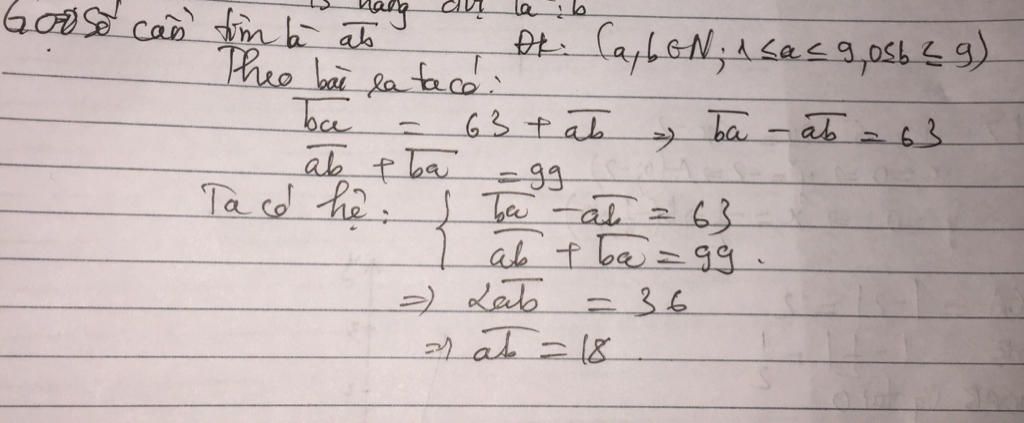 là : b
Gọi số cần tìm là ab̅ ĐK: (a, b ∈ N; 1 ≤ a ≤ 9, 0 ≤ b ≤ 9)
Theo bài ra ta có:
b̅a̅ = 63 + a̅b̅ => b̅a̅ - a̅b̅ = 63
a̅b̅ + b̅a̅ = 99
Ta có hệ: { b̅a̅ - a̅b̅ = 63
a̅b̅ + b̅a̅ = 99.
=> 2a̅b̅ = 36
=> a̅b̅ = 18.